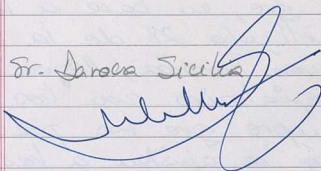 Sr. Daroca Sicilia